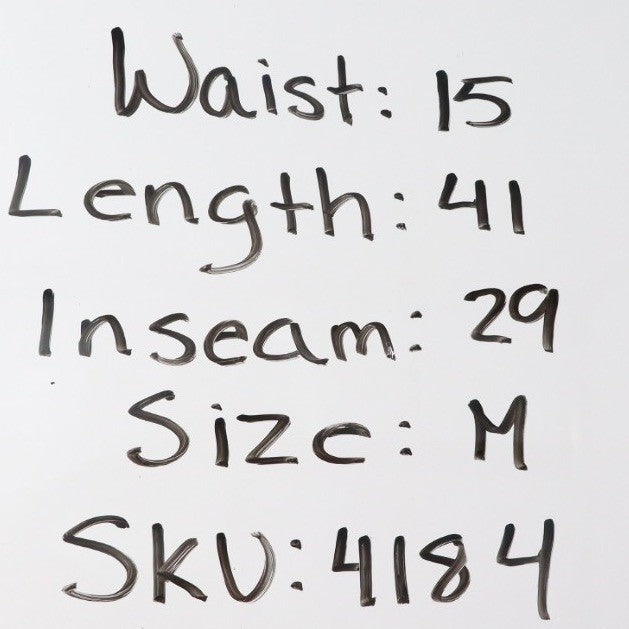 Waist: 15
Length: 41
Inseam: 29
Size: M
SKU: 4184